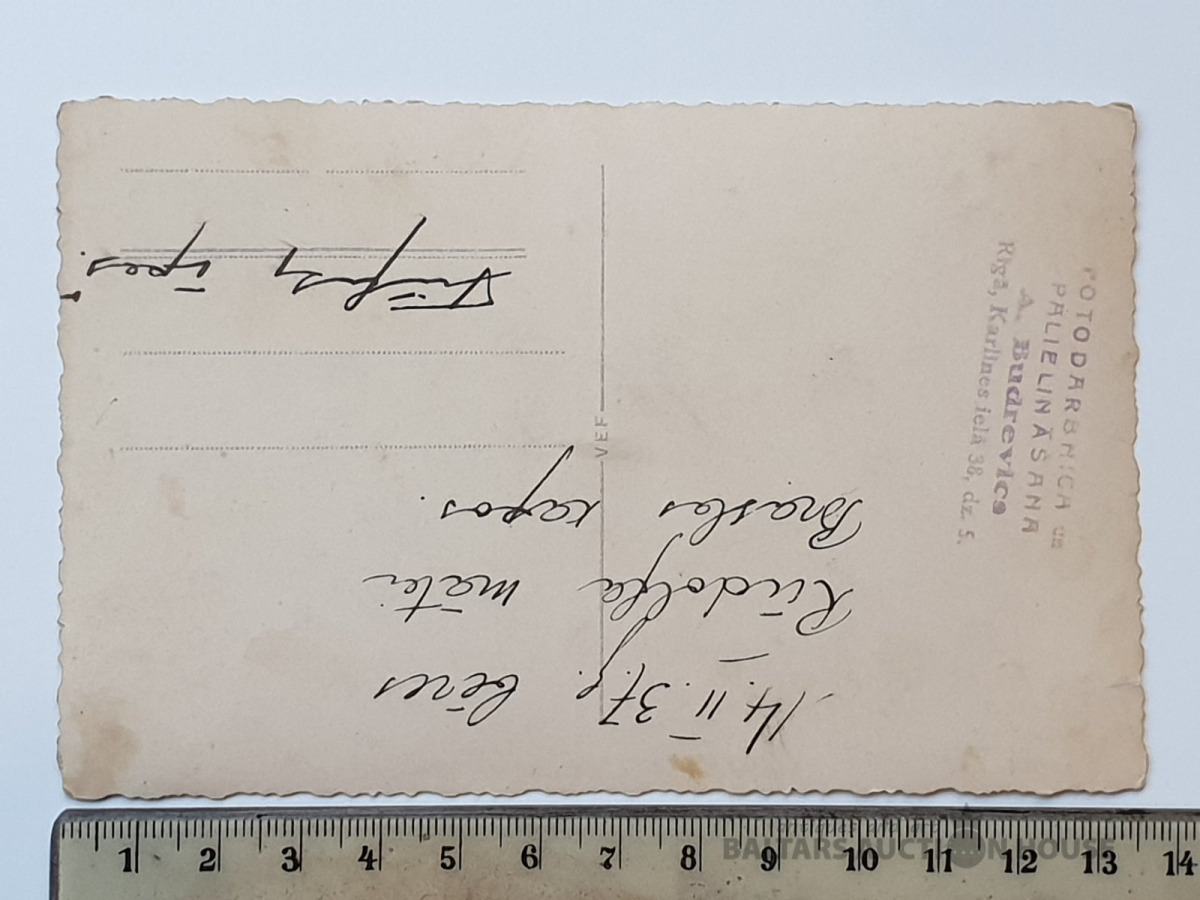 14. II. 37. g. bēres
Rūdolfa mātei
Braslas kapos.
VEF
FOTODARBNICA un
PALIELINĀŠANA
A. Budrevics
Rīgā, Karlines ielā 38, dz. 5.
1 2 3 4 5 6 7 8 9 10 11 12 13 14
BALTARS AUCTION HOUSE